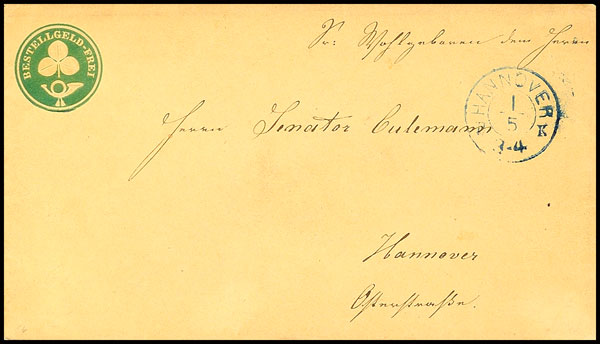 BESTELLGELD-FREI
Sr: Wohlgeboren dem Herrn
Herrn Senator Culemann
HANNOVER
1
5
K
3-4
Hannover
Osterstraße.